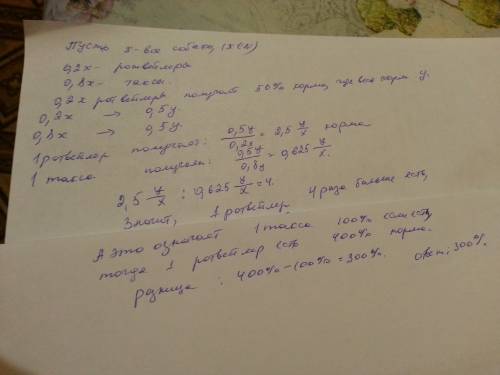 Пусть x - все собаки, (x∈N)
0,2x - ротвейлеры
0,8x - таксы.
0,2x ротвейлеры получают 50% корма, где все корм y.
0,2x → 0,5y
0,8x → 0,5y.
1 ротвейлер получает: 0,5y/0,2x = 2,5 y/x корма
1 такса получает: 0,5y/0,8y = 0,625 y/x.
2,5 y/x : 0,625 y/x = 4.
Значит, 1 ротвейлер 4 раза больше есть,
А это означает 1 такса 100% если есть,
тогда 1 ротвейлер есть 400% корма.
разница: 400% - 100% = 300%. Ответ: 300%